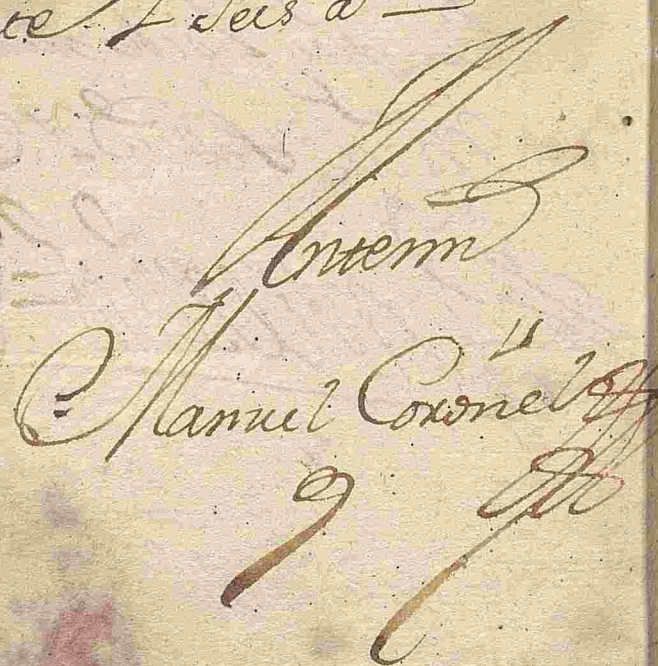 te y seis a
Antemi
Manuel Coronel